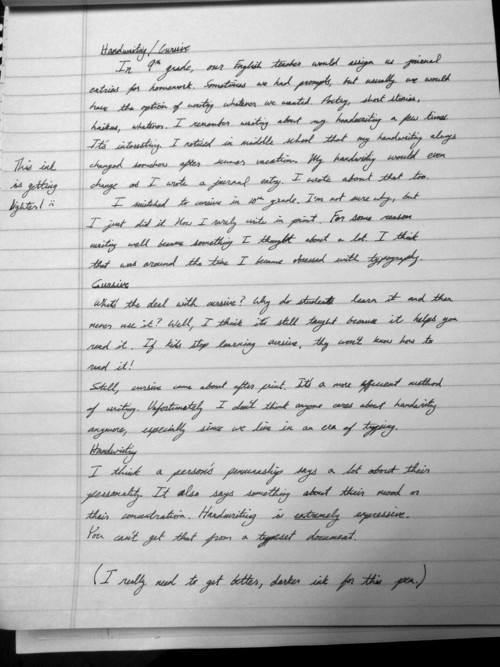 Handwriting/Cursive
In 9th grade, our English teacher would assign us journal
entries for homework. Sometimes we had prompts, but usually we would
have the option of writing whatever we wanted. Poetry, short stories,
haikus, whatever. I remember writing about my handwriting a few times.
It's interesting. I noticed in middle school that my handwriting always
changed somehow after summer vacation. My handwriting would even
change as I wrote a journal entry. I wrote about that too.
This ink
is getting
lighter!
I switched to cursive in 10th grade. I'm not sure why, but
I just did it. Now I rarely write in print. For some reason
writing well became something I thought about a lot. I think
that was around the time I became obsessed with typography.
Cursive
What's the deal with cursive? Why do students learn it and then
never use it? Well, I think it's still taught because it helps you
read it. If kids stop learning cursive, they won't know how to
read it!
Still, cursive came about after print. It's a more efficient method
of writing. Unfortunately I don't think anyone cares about handwriting
anymore, especially since we live in an era of typing.
Handwriting
I think a person's penmanship says a lot about their
personality. It also says something about their mood or
their concentration. Handwriting is extremely expressive.
You can't get that from a typeset document.
(I really need to get better, darker ink for this pen.)